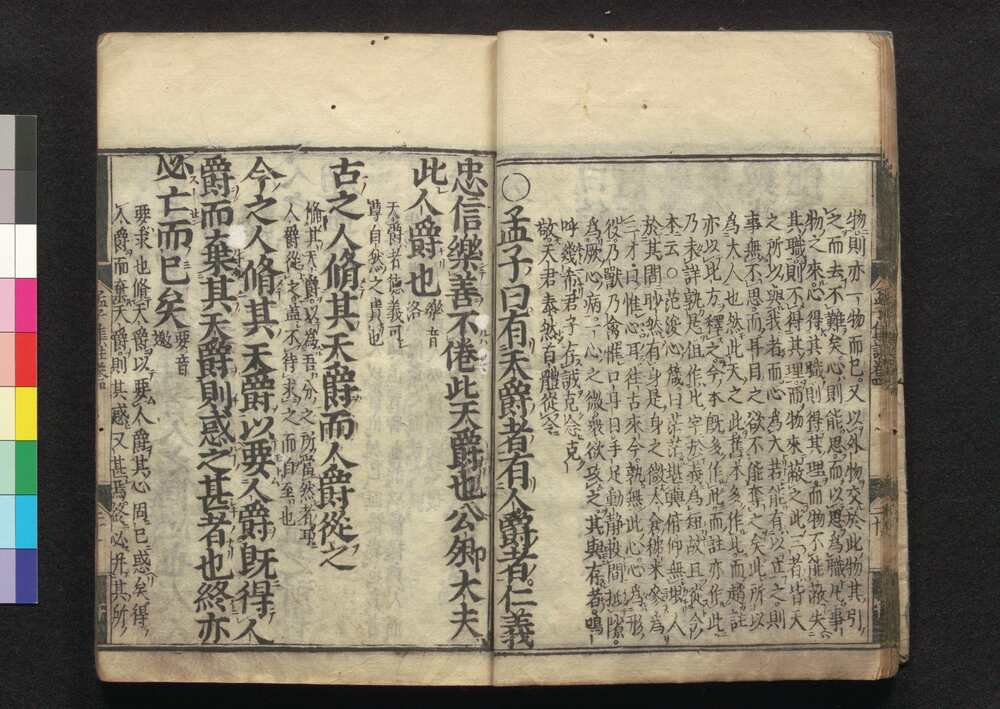 物則亦一物而已又以外物交於此物其引
之而去不難矣心則能思而以思為職凡事
物之來心得其職則得其理而物不能蔽失
其職則不得其理而物來蔽之此三者皆天
之所以與我者而心為大若能有以立之則
事無不思而耳目之欲不能奪之矣此所以
為大人也然此天之此舊本多作比而趙註
亦以比方釋之今本既多作此而註亦作此
乃未詳孰是但作比字於義為短故且從今
本云○范浚心箴曰茫茫堪輿俯仰無垠人
於其間眇然有身是身之微太倉稊米參為
三才曰惟心耳往古來今孰無此心心為形
役乃獸乃禽惟口耳目手足動靜投間抵隙
為厥心病一心之微衆欲攻之其與存者嗚
呼幾希君子存誠克念克
敬天君泰然百體從令
○孟子曰有天爵者有人爵者仁義
忠信樂善不倦此天爵也公卿大夫
此人爵也 樂音洛
天爵者德義可
尊自然之貴也
古之人脩其天爵而人爵從之
脩其天爵以為吾分之所當然者耳
人爵從之蓋不待求之而自至也
今之人脩其天爵以要人爵既得人
爵而棄其天爵則惑之甚者也終亦
必亡而已矣 要音邀
要求也脩天爵以要人爵其心固已惑矣得
人爵而棄天爵則其惑又甚焉終必并其所